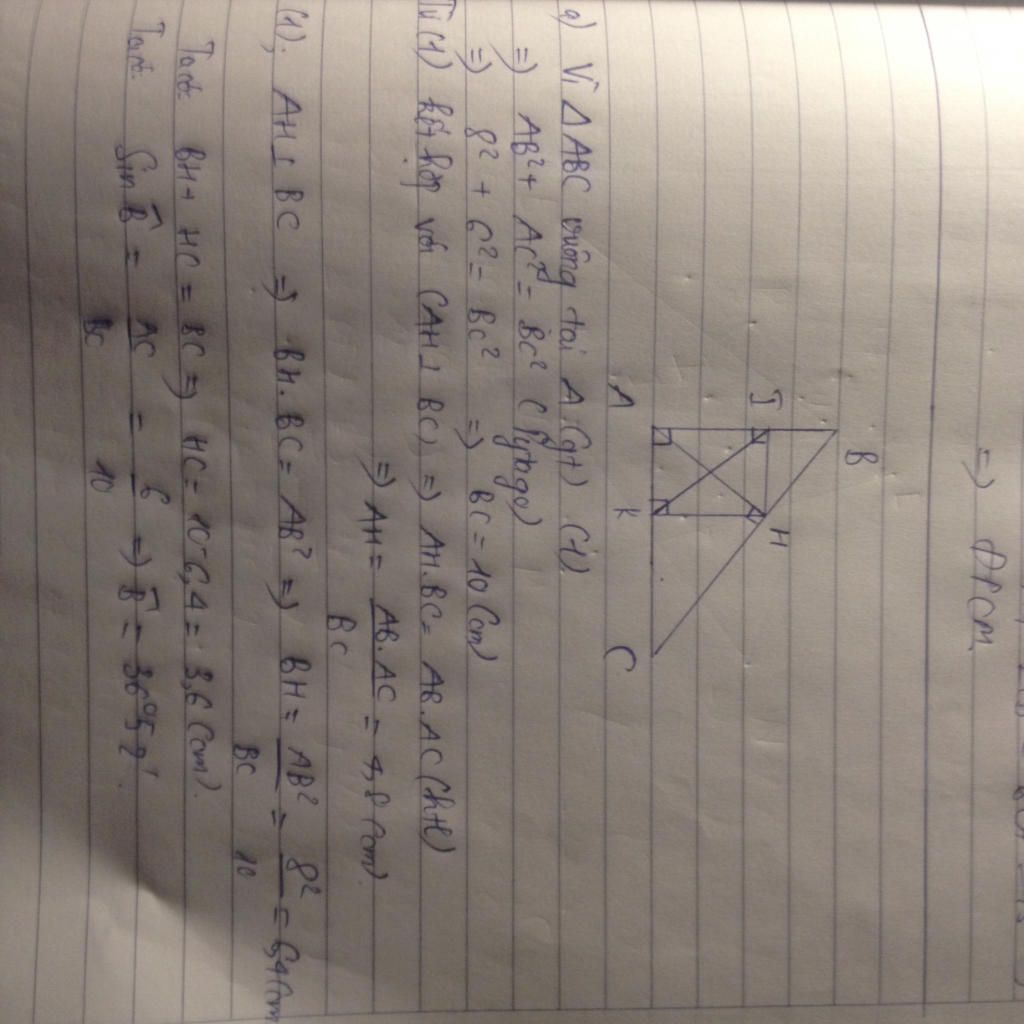 =) ĐPCM
B
I
H
A
K
C
a) Vì △ABC vuông tại A (gt) (1)
=) AB² + AC² = BC² (Pytago)
=) 8² + 6² = BC² =) BC = 10 (cm)
Từ (1) kết hợp với (AH⊥ BC) =) AH.BC = AB.AC (htl)
=) AH = AB.AC / BC = 4,8 (cm)
(1), AH⊥ BC =) BH.BC = AB² =) BH = AB² / BC = 8² / 10 = 6,4 (cm
Ta có: BH + HC = BC =) HC = 10-6,4 = 3,6 (cm).
Ta có: Sin B̂ = AC / BC = 6 / 10 =) B̂ = 36°52'.